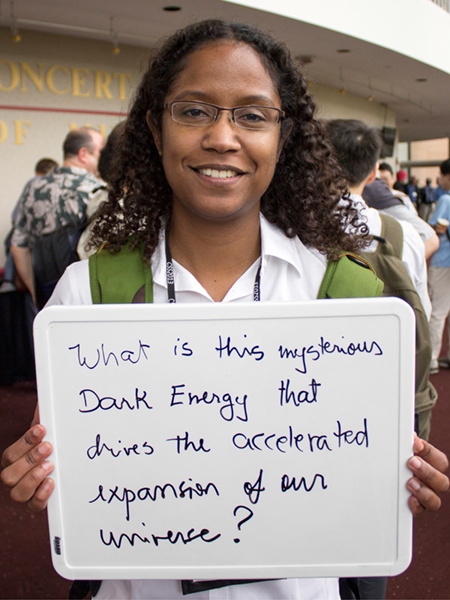 CONCERT
OF
What is this mysterious
Dark Energy that
drives the accelerated
expansion of our
universe?